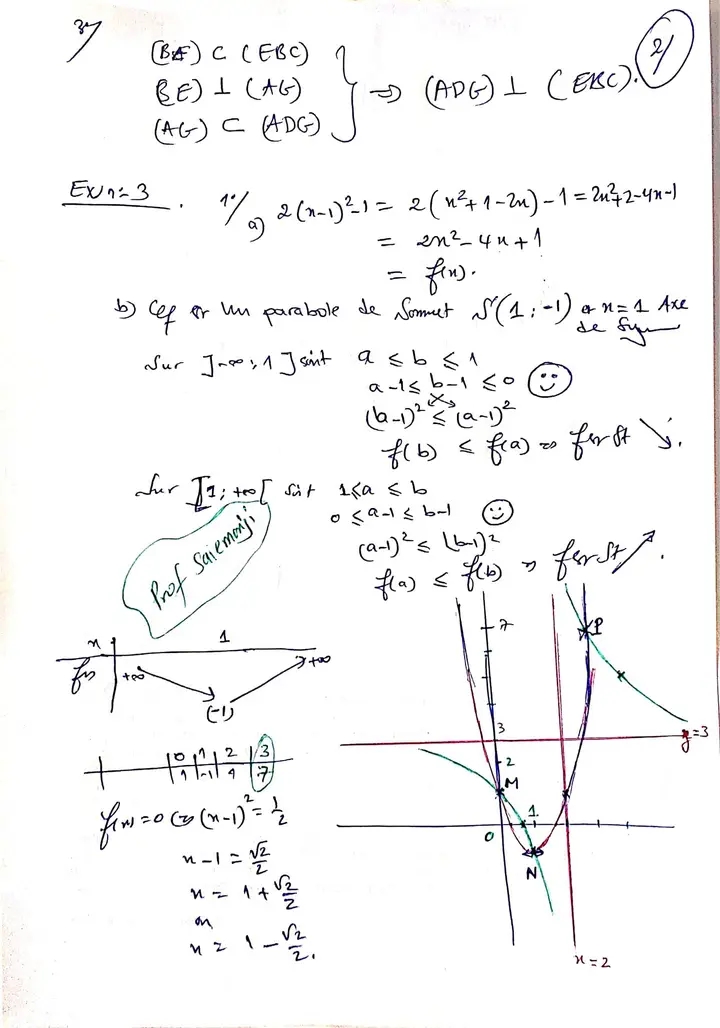 3°/
(BE) ⊂ (EBC)
BE) ⊥ (AG)
(AG) ⊂ (ADG)
⇒ (ADG) ⊥ (EBC).
2/
Ex n=3
1°/ a) 2(x-1)²-1 = 2(x²+1-2x)-1 = 2x²+2-4x-1
= 2x²-4x+1
= f(x).
b) Cef er un parabole de Sommet S(1;-1) et x=1 Axe
de Sym
Sur ]-∞;1] soit a ≤ b ≤ 1
a-1 ≤ b-1 ≤ 0
(b-1)² ≤ (a-1)²
f(b) ≤ f(a) ⇒ f er St ↘.
Sur [1;+∞[ soit 1 ≤ a ≤ b
0 ≤ a-1 ≤ b-1
(a-1)² ≤ (b-1)²
f(a) ≤ f(b) ⇒ f er St ↗.
Prof Saiemonji
x 1
f(x) +∞ (-1) +∞
0 1 2 3
1 -1 1 7
f(x)=0 ⇔ (x-1)² = 1/2
x-1 = √2/2
x = 1+√2/2
ou
x = 1-√2/2.
7
P
3
y=3
2
M
1
0
N
x=2